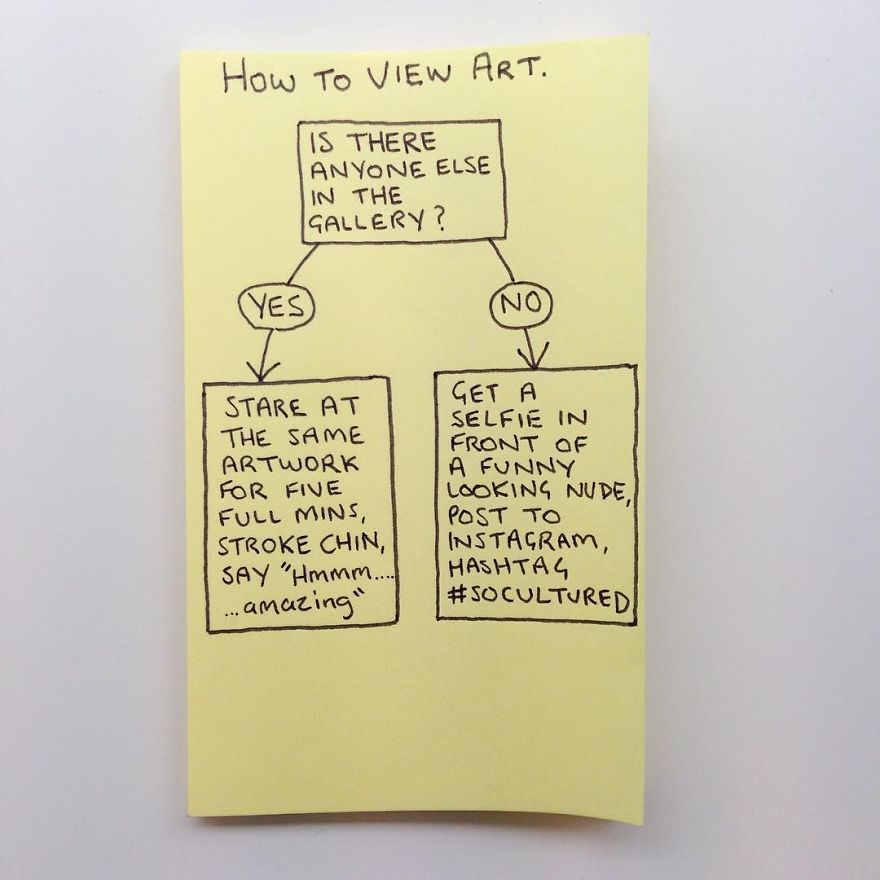 HOW TO VIEW ART.
IS THERE
ANYONE ELSE
IN THE
GALLERY?
YES
NO
STARE AT
THE SAME
ARTWORK
FOR FIVE
FULL MINS,
STROKE CHIN,
SAY "Hmmm....
...amazing"
GET A
SELFIE IN
FRONT OF
A FUNNY
LOOKING NUDE,
POST TO
INSTAGRAM,
HASHTAG
#SOCULTURED